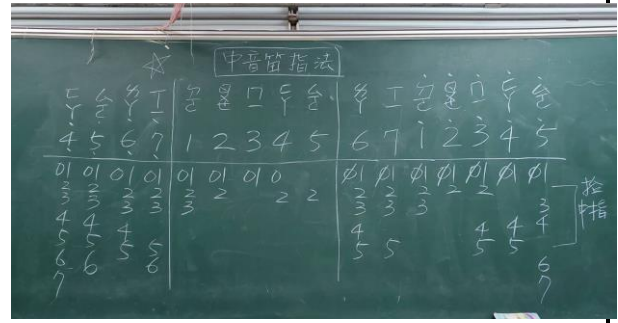 中音笛指法
ㄈㄚ ㄙㄛ ㄌㄚ ㄒㄧ ㄉㄛ ㄖㄨㄟ ㄇㄧ ㄈㄚ ㄙㄛ ㄌㄚ ㄒㄧ ㄉㄛ ㄖㄨㄟ ㄇㄧ ㄈㄚ ㄙㄛ
4̣ 5̣ 6̣ 7̣ 1 2 3 4 5 6 7 1̇ 2̇ 3̇ 4̇ 5̇
01 01 01 01 01 01 01 0 Ø1 Ø1 Ø1 Ø1 Ø1 Ø1 Ø1
2 2 2 2 2 2 2 2 2 2 2 2 2
3 3 3 3 3 3 3 3 3
4 4 4 4 4 4 4
5 5 5 5 5 5 5 5
6 6 6 6
7 7
中指